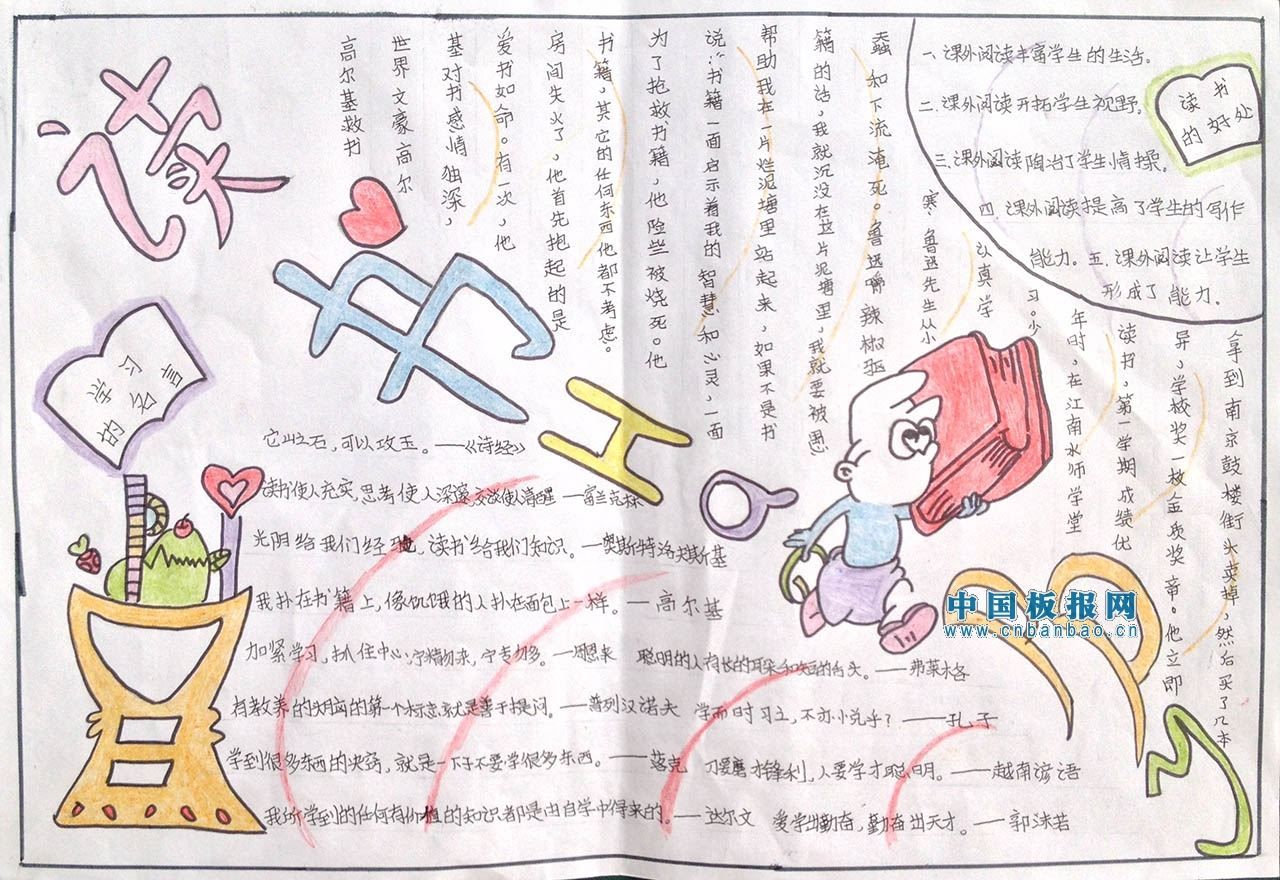 读书
高尔基救书
世界文豪高尔
基对书感情独深，
爱书如命。有一次，他
房间失火了，他首先抱起的是
书籍，其它的任何东西他都不考虑。
为了抢救书籍，他险些被烧死。他
说：“书籍一面启示着我的智慧和心灵，一面
帮助我在一片烂泥塘里站起来，如果不是书
籍的话，我就沉没在这片泥塘里，我就要被愚
蠢和下流淹死。鲁迅嚼辣椒驱
寒，鲁迅先生从小
认真学
习。少
年时，在江南水师学堂
读书，第一学期成绩优
异，学校奖一枚金质奖章。他立即
拿到南京鼓楼街头卖掉，然后买了几本
读书
的好处
一、课外阅读丰富学生的生活。
二、课外阅读开拓学生视野。
三、课外阅读陶冶了学生情操。
四、课外阅读提高了学生的写作
能力。五、课外阅读让学生
形成了能力。
的名言
它山之石，可以攻玉。——《诗经》
读书使人充实，思考使人深邃，交谈使人清醒——富兰克林
光阴给我们经验，读书给我们知识。——奥斯特洛夫斯基
我扑在书籍上，像饥饿的人扑在面包上一样。——高尔基
加紧学习，抓住中心，宁精勿杂，宁专勿多。——周恩来 聪明的人有长的耳朵和短的舌头。——弗莱格
有教养的头脑的第一个标志就是善于提问。——普列汉诺夫 学而时习之，不亦小说乎？——孔子
学到很多东西的决窍，就是一下子不要学很多东西。——洛克 刀要磨才锋利，人要学才聪明。——越南谚语
我所学到的任何有价值的知识都是由自学中得来的。——达尔文 爱学出勤奋，勤奋出天才。——郭沫若
中国板报网
www.cnbanbao.cn